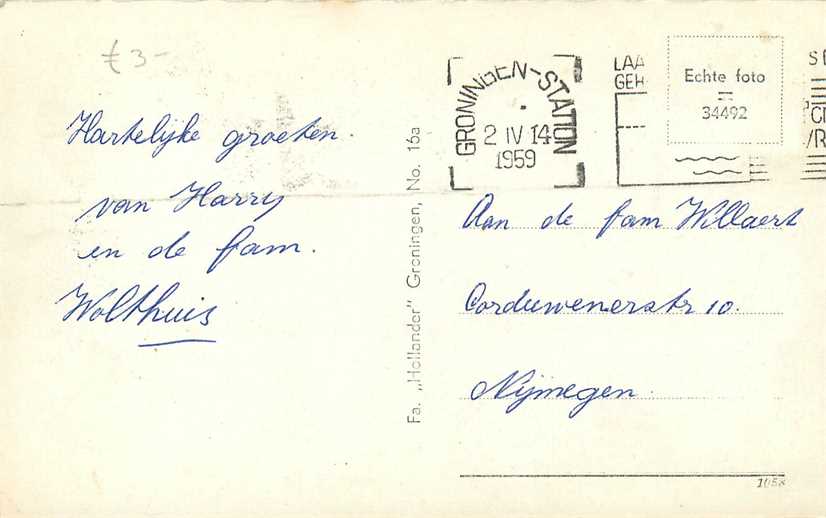 € 3-
Hartelijke groeten.
van Harry
en de fam.
Wolthuis
Fa. „Hollander" Groningen, No. 16a
GRONINGEN-STATION
2 IV 14
1959
LAA
GEH
Echte foto
34492
Aan de fam Willaert
Corduwenerstr 10.
Nijmegen.
1058